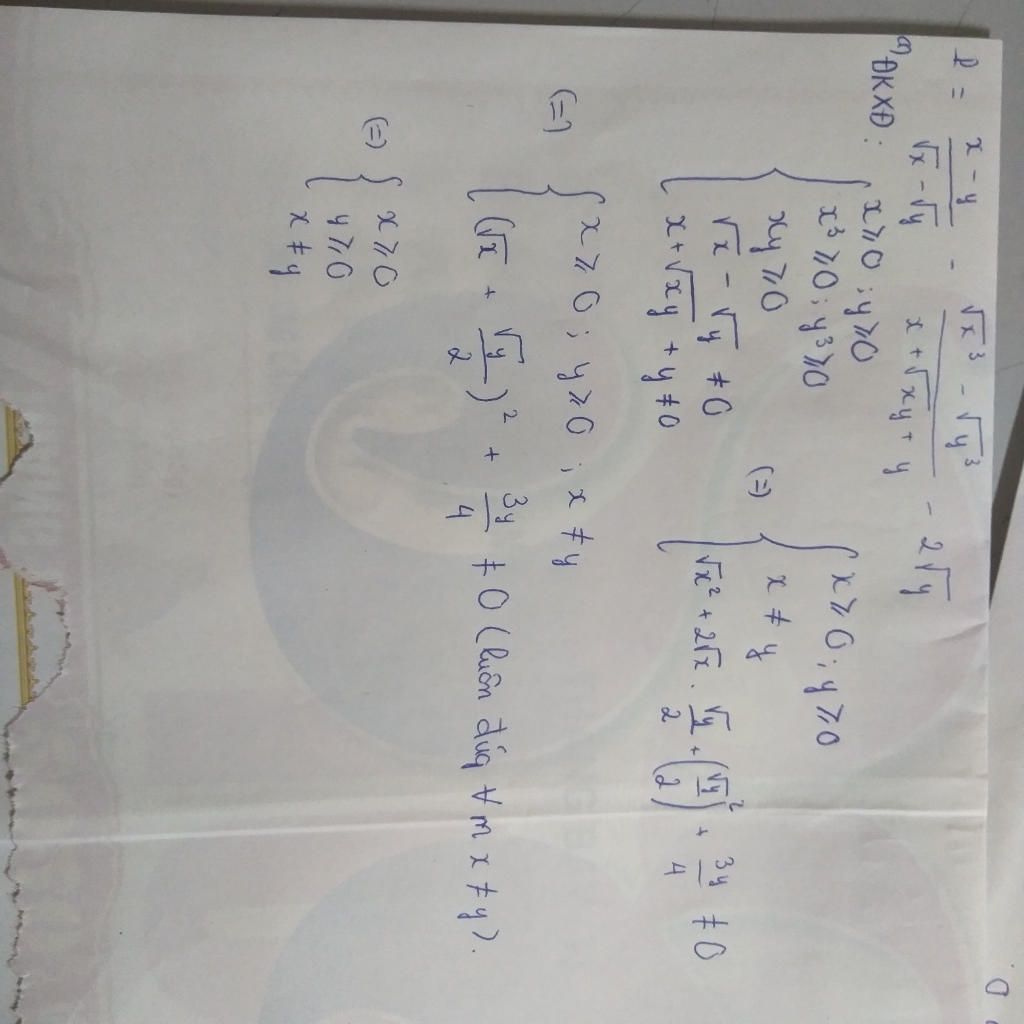 P = \frac{x - y}{\sqrt{x} - \sqrt{y}} - \frac{\sqrt{x^3} - \sqrt{y^3}}{x + \sqrt{xy} + y} - 2\sqrt{y}
a, ĐKXĐ: { x ≥ 0 ; y ≥ 0
x³ ≥ 0 ; y³ ≥ 0
xy ≥ 0
√x - √y ≠ 0
x + √xy + y ≠ 0
(=) { x ≥ 0 ; y ≥ 0
x ≠ y
√x² + 2√x . \frac{√y}{2} + (\frac{√y}{2})² + \frac{3y}{4} ≠ 0
(=) { x ≥ 0 ; y ≥ 0 ; x ≠ y
(√x + \frac{√y}{2})² + \frac{3y}{4} ≠ 0 (luôn đúg ∀ m x ≠ y).
(=) { x ≥ 0
y ≥ 0
x ≠ y